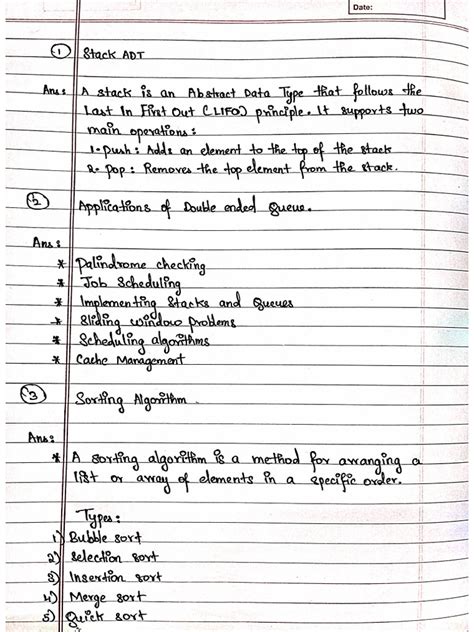 Date:
1 Stack ADT
Ans: A stack is an Abstract Data Type that follows the
Last In First Out (LIFO) principle. It supports two
main operations:
1. Push: Adds an element to the top of the stack
2. Pop: Removes the top element from the stack.
2 Applications of Double ended Queue.
Ans:
* Palindrome checking
* Job Scheduling
* Implementing Stacks and Queues
* Sliding window problems
* Scheduling algorithms
* Cache Management
3 Sorting Algorithm
Ans:
* A sorting algorithm is a method for arranging a
list or array of elements in a specific order.
Types:
1) Bubble sort
2) Selection sort
3) Insertion sort
4) Merge sort
5) Quick sort